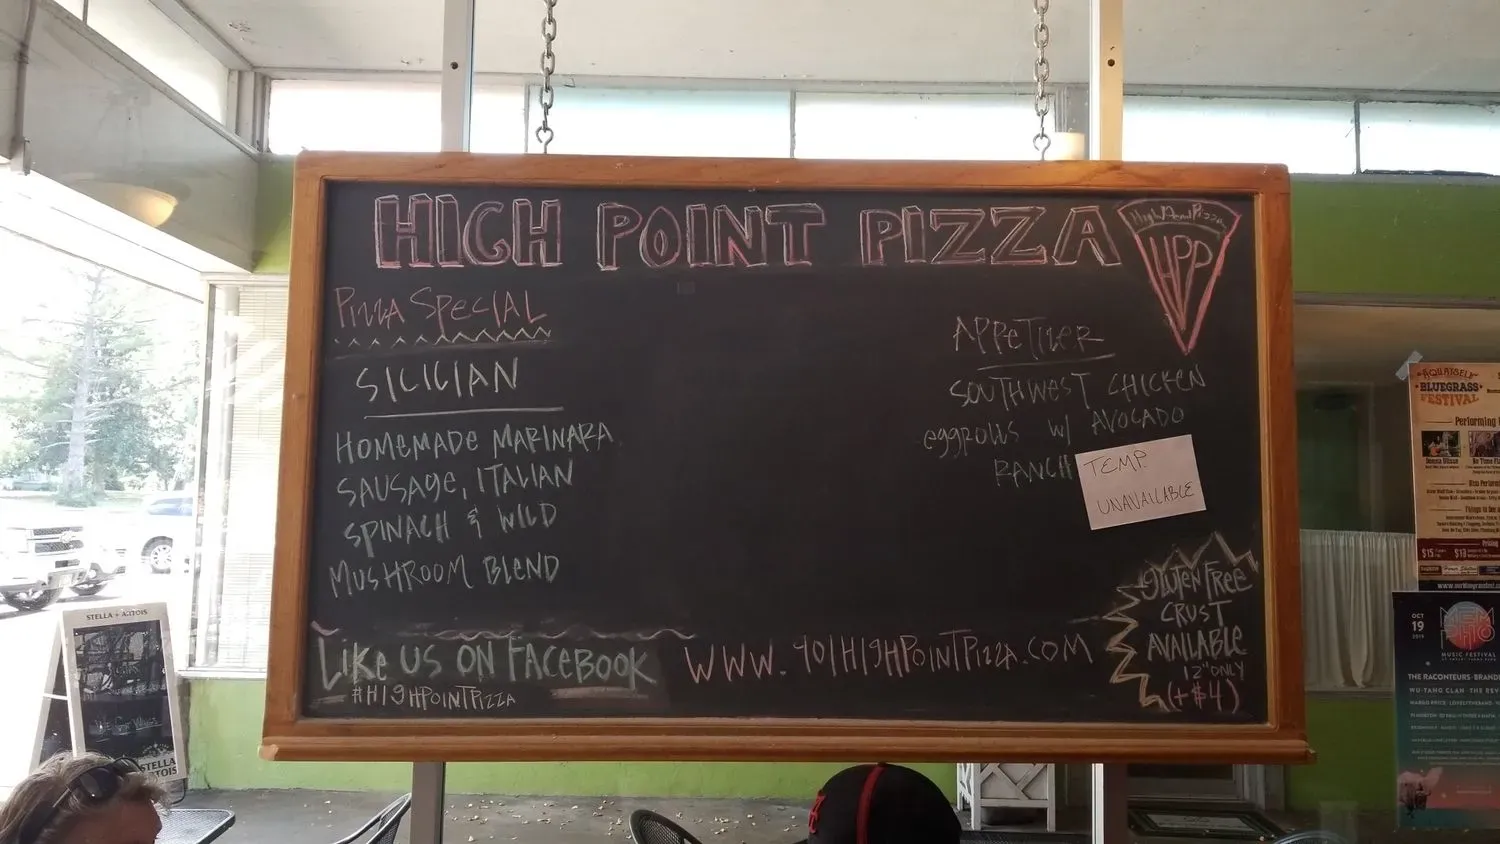 HIGH POINT PIZZA
High Point Pizza
HPP
Pizza Special
SICILIAN
HOMEMADE MARINARA
SAUSAge, ITALIAN
SPINACH & WILD
MUSHROOM BLEND
APPeTizeR
SOUTHWEST CHICKEN
eggrolls w/ AVOCADO
RANCH
TEMP.
UNAVAILABLE
GLUTEN FREE
CRUST
AVAILABLE
12" ONLY
(+$4)
LIKE US ON FACEBOOK
#HIGHPOINTPIZZA
WWW.901HIGHPOINTPIZZA.COM
STELLA ARTOIS
STELLA
ARTOIS
BLUEGRASS
FESTIVAL
Performing
$15 $10
OCT
19
2019
MEMPHO
MUSIC FESTIVAL
THE RACONTEURS · BRAND
WU-TANG CLAN · THE REV
MARGO PRICE · LOVELYTHEBAND · W